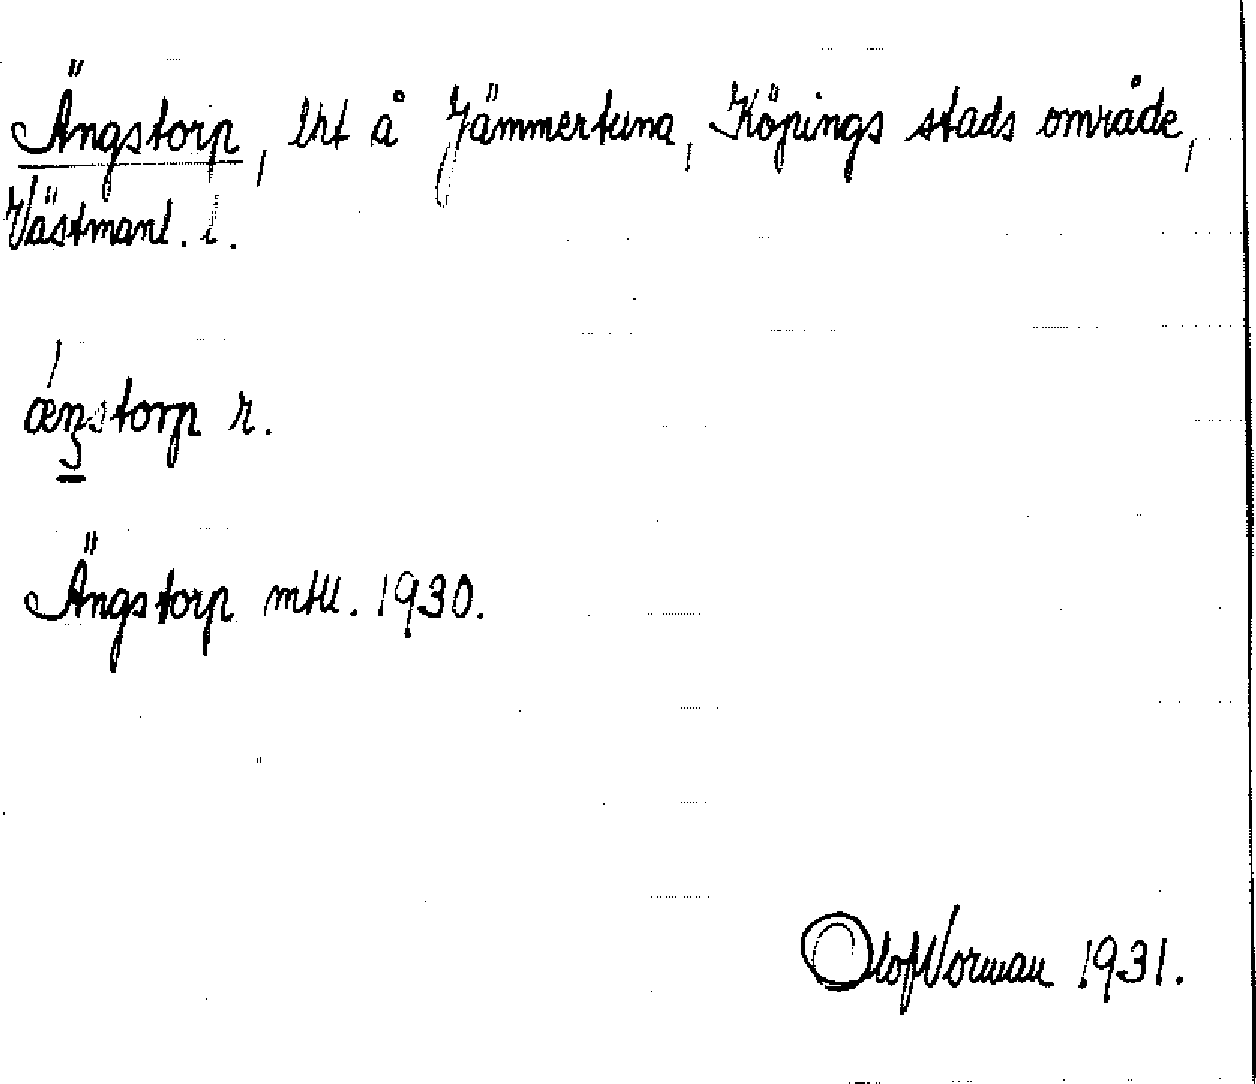 Ängstorp, lht å Jämmertuna, Köpings stads område,
Västmanl. l.
ǽŋstorp r.
Ängstorp mtll. 1930.
Olof Norman 1931.